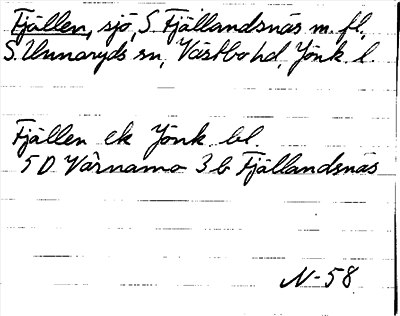 Fjällen, sjö, S. Fjällandsnäs m. fl.,
S. Unnaryds sn, Västbo hd, Jönk. l.
Fjällen ek Jönk. bl.
5 D Värnamo 3 b Fjällandsnäs
N-58